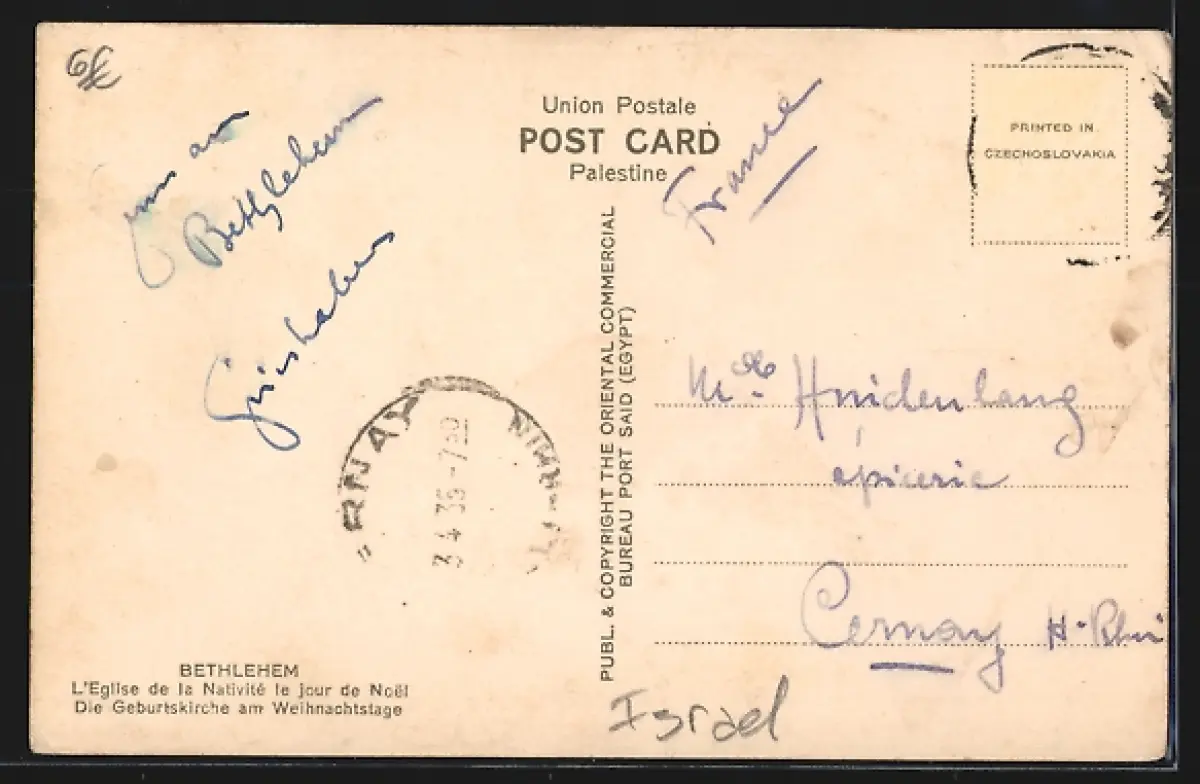 Union Postale
POST CARD
Palestine
France
PRINTED IN
CZECHOSLOVAKIA
Bethlehem
PUBL. & COPYRIGHT THE ORIENTAL COMMERCIAL
BUREAU PORT SAID (EGYPT)
épicerie
Cernay H-Rhin
RNAY
3 4 35 - 7 30
BETHLEHEM
L'Eglise de la Nativité le jour de Noël
Die Geburtskirche am Weihnachtstage
Israel